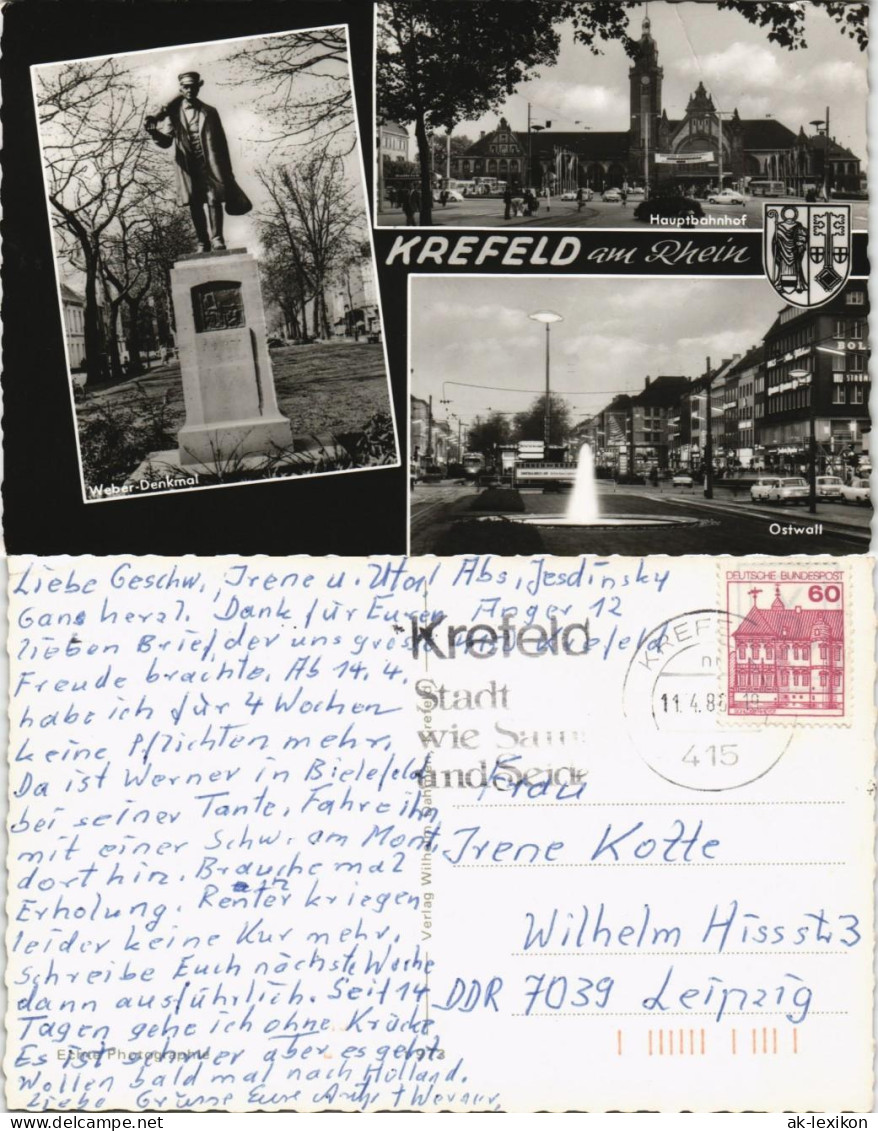 Hauptbahnhof
KREFELD am Rhein
Weber-Denkmal
BOL
Ostwall
Liebe Geschw., Irene u.
Abs. Jesdinsky
Ganz herzl. Dank für Euren
Anger 12
lieben Brief, der uns grosse
Krefeld
Freude brachte. Ab 14.4.
habe ich für 4 Wochen
keine Pflichten mehr.
Da ist Werner in Bielefeld
bei seiner Tante. Fahre ihn
mit einer Schw. am Mont.
dorthin. Brauche mal
Erholung. Rentner kriegen
leider keine Kur mehr.
Schreibe Euch nächste Woche
dann ausführlich. Seit 14
Tagen gehe ich ohne Krücke
Es ist schwer aber es geht.
Wollen bald mal nach Holland.
Liebe Grüsse Eure + Werner.
Echte Photographie
973
Verlag Wilhelm Krefeld
Krefeld
Stadt
wie Samt
und Seide
KREFELD
11.4.8
415
DEUTSCHE BUNDESPOST
60
Frau
Irene Kotte
Wilhelm Hissstr 3
DDR 7039 Leipzig
ak-lexikon
www.delcampe.net